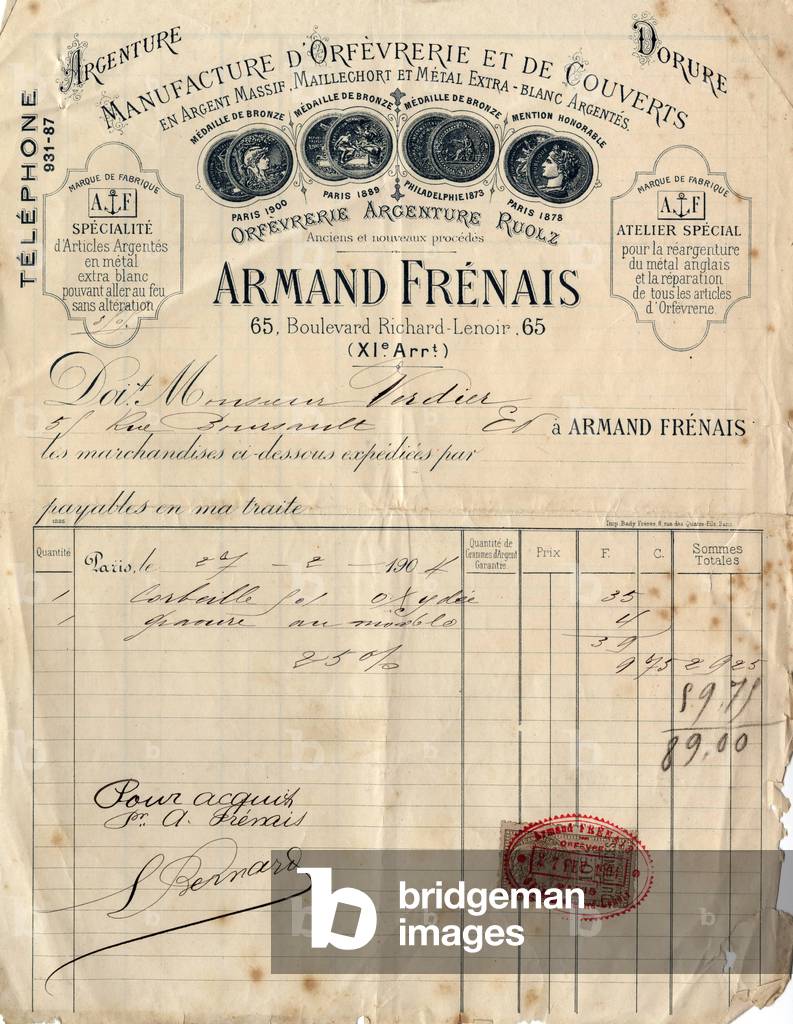 ARGENTURE
DORURE
MANUFACTURE D'ORFÈVRERIE ET DE COUVERTS
EN ARGENT MASSIF, MAILLECHORT ET MÉTAL EXTRA-BLANC ARGENTÉS.
TÉLÉPHONE
931-87
MÉDAILLE DE BRONZE
MÉDAILLE DE BRONZE
MÉDAILLE DE BRONZE
MENTION HONORABLE
PARIS 1900
PARIS 1889
PHILADELPHIE 1873
PARIS 1878
ORFÈVRERIE ARGENTURE RUOLZ
Anciens et nouveaux procédés
MARQUE DE FABRIQUE
A F
SPÉCIALITÉ
d'Articles Argentés
en métal
extra blanc
pouvant aller au feu
sans altération
MARQUE DE FABRIQUE
A F
ATELIER SPÉCIAL
pour la réargenture
du métal anglais
et la réparation
de tous les articles
d'Orfévrerie.
ARMAND FRÉNAIS
65, Boulevard Richard-Lenoir, 65
(XIe Arrt)
Doit Monsieur Verdier
51 Rue Boursault Ed à ARMAND FRÉNAIS
les marchandises ci-dessous expédiées par
payables en ma traite
Imp. Bady Frères, 8, rue des Quatre-Fils, Paris
Quantité
Quantité de Grammes d'Argent Garantie
Prix
F.
C.
Sommes Totales
Paris, le 27 - 2 - 1904
1 Corbeille oxydée 35
1 gravure au modèle 4
39
25% 9 75 29 25
59.75
89.00
Pour acquit
pr. A. Frénais
L Bernard
Armand FRÉNAIS
ORFÈVRE
27 FEV 1904
PARIS
b bridgeman
images